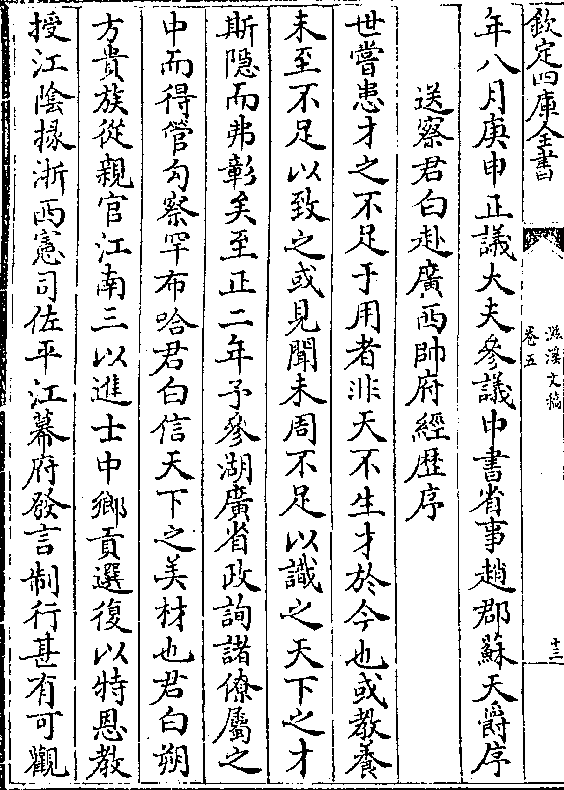 欽定四庫全書
滋溪文稿
卷五
十三
年八月庚申正議大夫參議中書省事趙郡蘇天爵序
送察君白赴廣西帥府經歷序
世嘗患才之不足于用者非天不生才於今也或教養
未至不足以致之或見聞未周不足以識之天下之才
斯隱而弗彰矣至正二年予參湖廣省政詢諸僚屬之
中而得管勾察罕布哈君白信天下之美材也君白朔
方貴族從親官江南三以進士中鄉貢選復以特恩教
授江陰掾浙西憲司佐平江幕府發言制行甚有可觀